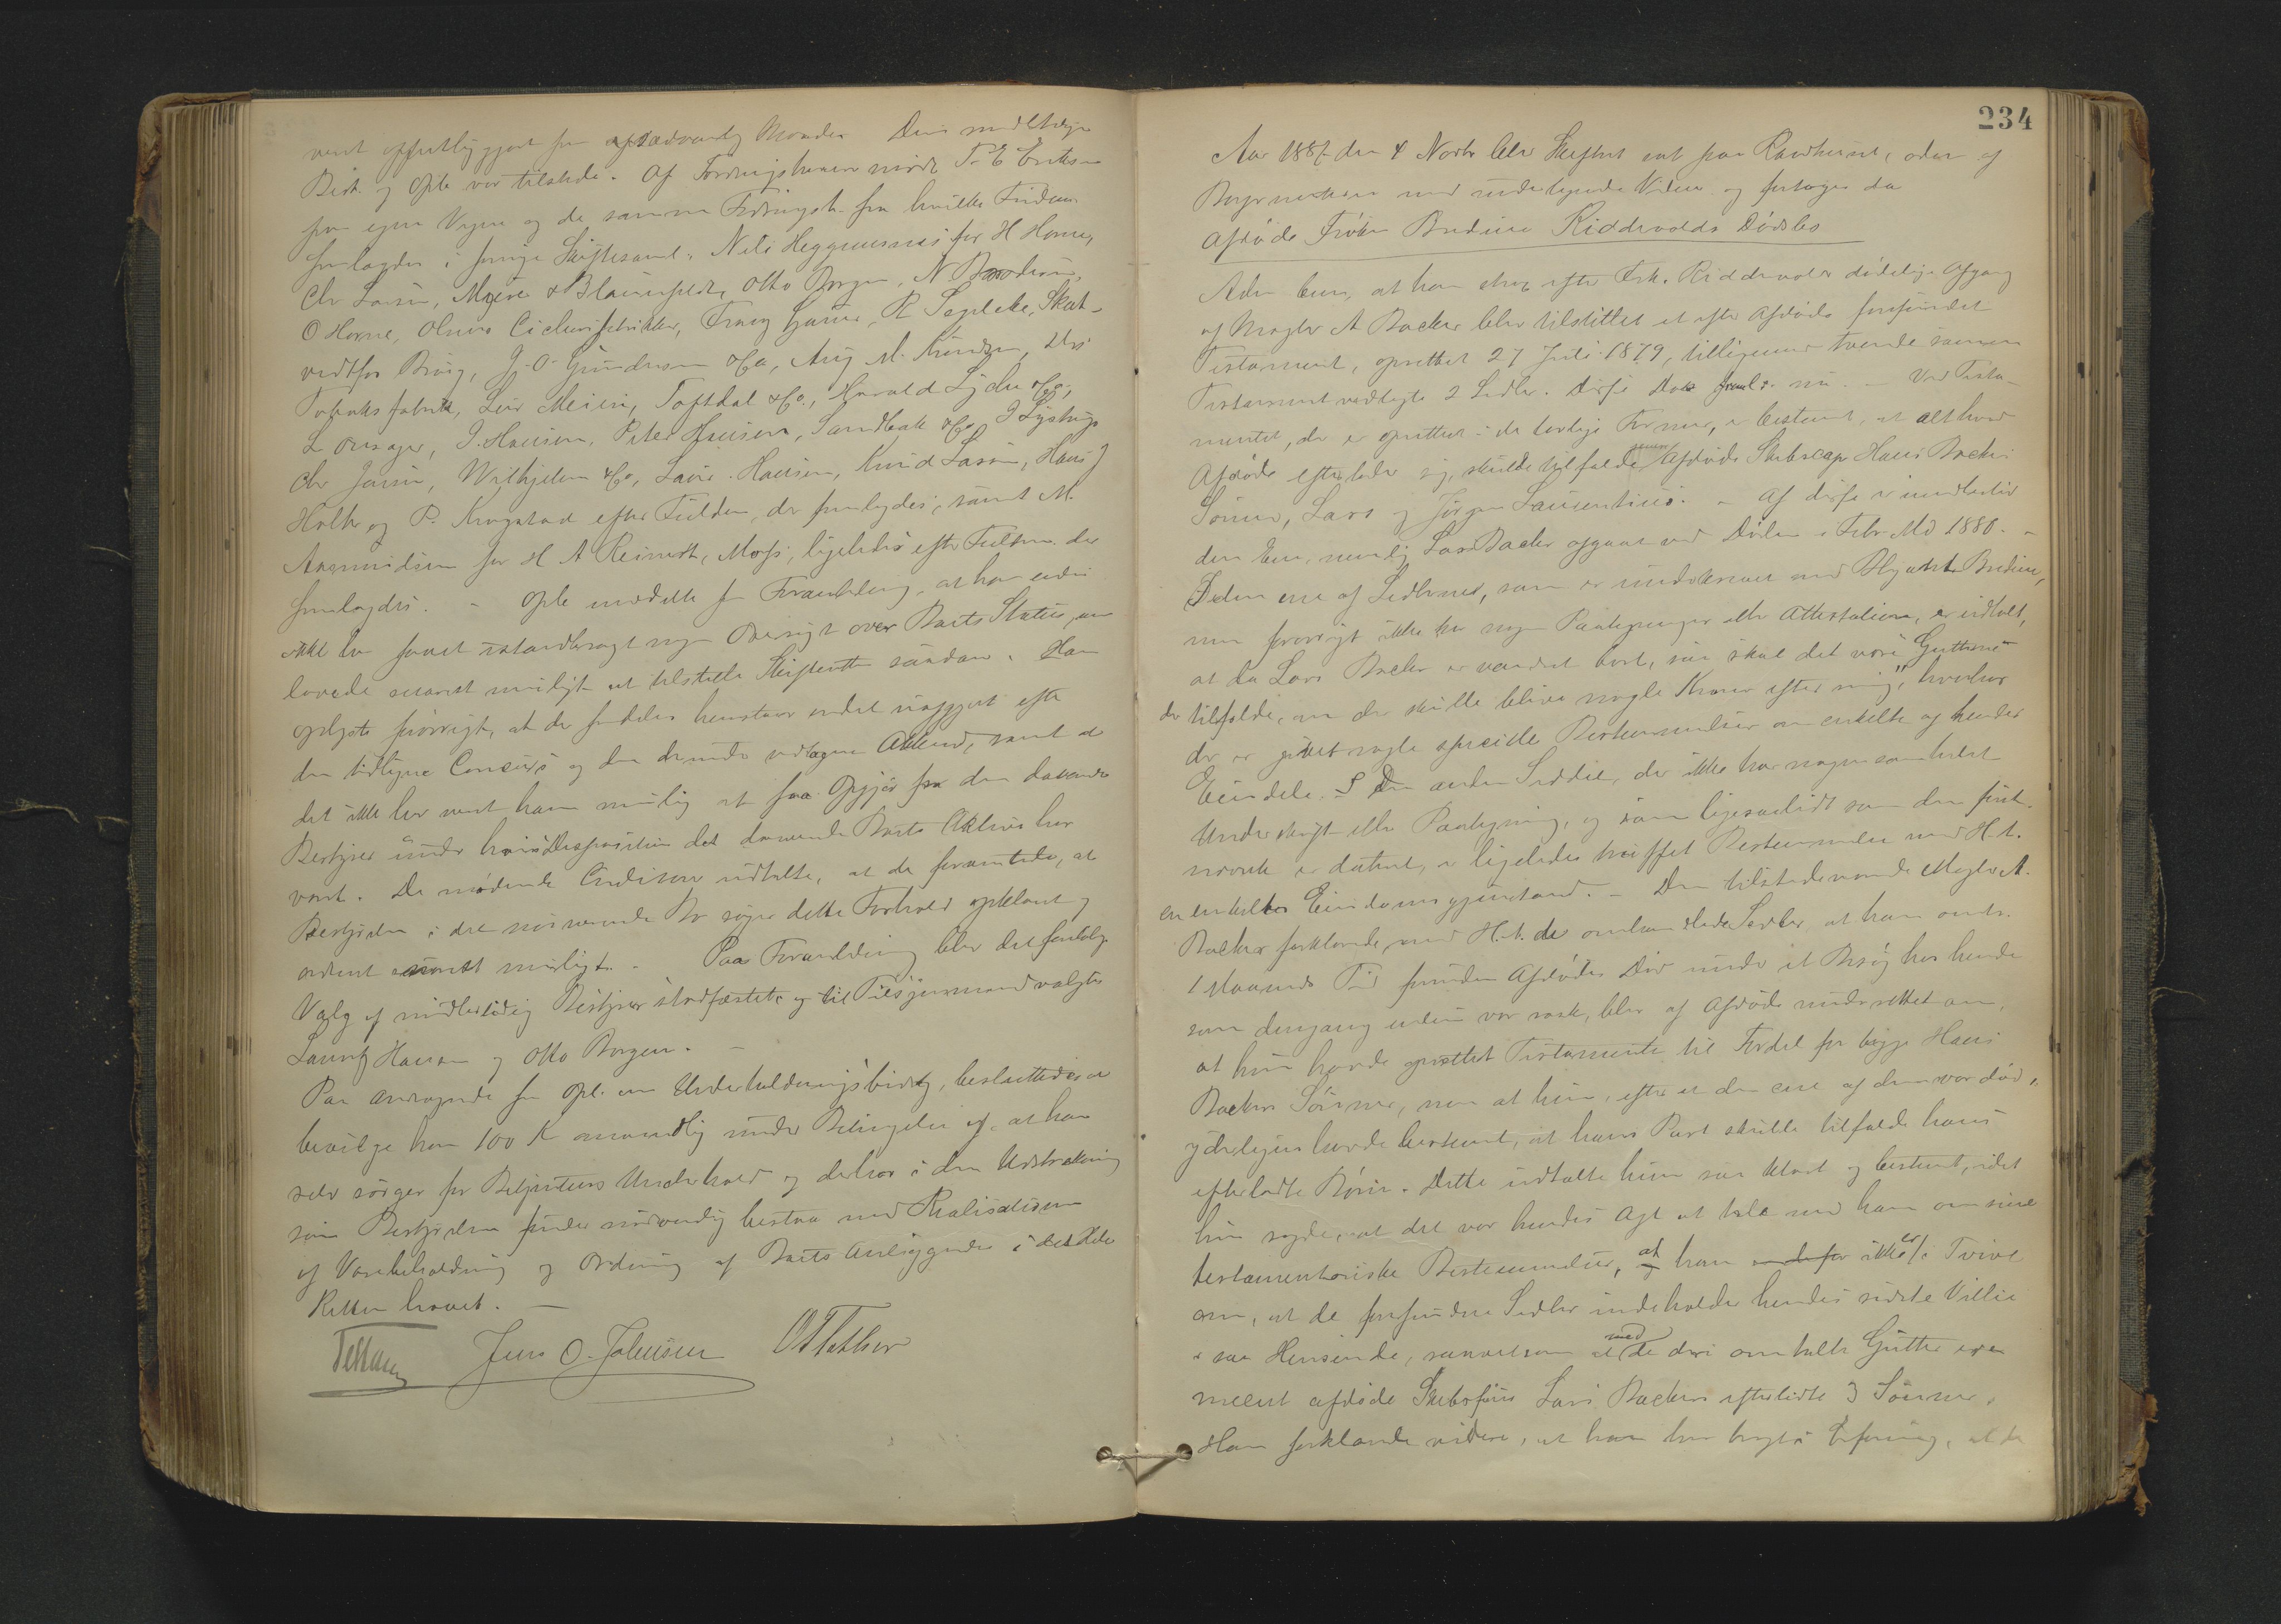 været offentliggjort paa sædvanlig Maade. Den midlertidige
Best. og Opb. var tilstede. Af Fordringshavere mødte T. E. Eriksen
paa egne Vegne og de samme Fordringsh. for hvilke Fuldm.
fremlagdes i forrige Skiftesaml., Nils Heggumsnes for H Horne,
Chr Larsen, Myren & Blaunfeldt, Otto Borgen, N. Brodersen,
O Horne, Olsens Cichorifabrikker, Franz Gause, R Seplche, Skat-
vedtfos Brug, G. O. Gundersen & Co, Aug M. Knudsen,
Tobaksfabrik, Leis Meiers, Toftdal & Co., Harald Lyche & Co.,
L Onsager, J. Hansen, Peter Hansen, Sandbak & Co, J Lystrup
Chr Jensen, Wilhjelm & Co, Laur. Hansen, Knud Larsen, Hans J
Holth og P. Krogstad efter Fuldm., der fremlagdes, samt M.
Aasmundsen for H A Reinert, Moss, ligeledes efter Fuldm. der
fremlagdes. - Opb. meddelte paa Foranledning, at han endnu
ikke har faaet istandbragt nogen Oversigt over Boets Status, men
lovede snarest muligt at tilstille Skifteretten saadan. Han
oplyste forøvrigt, at der fremdeles henstaar endel uopgjort efter
den tidligere Concurs og den derunder vedtagne Akkord, samt at
det ikke har været ham mulig at faa Opgjør fra den daværende
Bestyrer under hvis Disposition det daværende Boets Aktiva har
været. De mødende Creditorer udtalte, at de forventede, at
Bestyrelsen i det nuværende Bo søger dette Forhold opklaret og
ordnet snarest muligt. - Paa Foranledning blev det foreløbige
Valg af midlertidig Bestyrer stadfæstet og til Tilsynsmænd valgtes
Lauritz Hansen og Otto Borgen. -
Paa Andragende fra Opb. om Underholdningsbidrag, besluttedes at
bevilge ham 100 K maanedlig under Betingelse af, at han
selv sørger for Betjentens Underhold og derhos i den Udstrækning
som Bestyrelsen finder nødvendig bistaar med Realisationen
af Varebeholdning og Ordning af Boets Anliggender i det Hele
Retten hævet. -
Jens O. Johnsen
234
Aar 1887 den 4 Novbr blev Skifteret sat paa Raadhuset, orden af
Borgermesteren med undertegnede Vidner og foretoges da
Afdøde Frøken Bredine Riddervolds Dødsbo
Adm. bem., at han strax efter Frk. Riddervolds dødelige Afgang
af Mægler A Backer blev tilstillet et efter Afdøde forefundet
Testament, oprettet 27 Juli 1879, tilligemed tvende samme
Testament vedlagte 2 Sedler. Disse Dok. freml. nu. - Ved Testa-
mentet, der er oprettet i de lovlige Former, er bestemt, at alt hvad
Afdøde efterlader sig, skulde tilfalde Afdøde Skibscap Hans Backers
Sønner, Lars og Jørgen Laurentius. - Af disse er imidlertid
den Ene, nemlig Lars Backer afgaaet ved Døden i Febr Md 1886. -
I den ene af Sedlerne, som er underskrevet med Afdødes Bredine,
men forøvrigt ikke har nogen Paategninger eller Attestation, er udtalt,
at da Lars Backer er vandret bort, saa skal det være "Gutterne"
der tilfalde, om der skulle blive nogle Kroner efter mig", hvorhos
der er givet nogle specielle Bestemmelser om enkelte af hendes
Eiendele. I Den anden Seddel, der ikke har nogensomhelst
Underskrift eller Paategning, og som ligesaalidt som den først-
nævnte er dateret, er ligeledes truffet Bestemmelse med H. t.
en enkeltes Eiendomsgjenstand. - Den tilstedeværende Mægler A.
Backer forklarede, med H. t. de omhandlede Sedler, at han omtr.
1 Maaneds Tid forinden Afdødes Død under et Besøg hos hende
som dengang endnu var rask, blev af Afdøde underrettet om,
at hun havde oprettet Testamente til Fordel for begge Hans
Backers Sønner, men at hun, efter at den ene af dem var død,
yderligere havde bestemt, at hans Part skulle tilfalde hans
efterladte Børn. Dette udtalte hun saa klart og bestemt, idet
hun sagde, at det var hendes Agt at tale med ham om sine
testamentariske Bestemmelser, at han ikke er i Tvivl
om, at de forefundne Sedler indeholder hendes sidste Villie
i saa Henseende, saavelsom at med de deri omtalte Gutter er
meent afdøde Skibsfører Lars Backers efterladte 3 Sønner.
Han forklarede videre, at han har bragt i Erfaring, at de